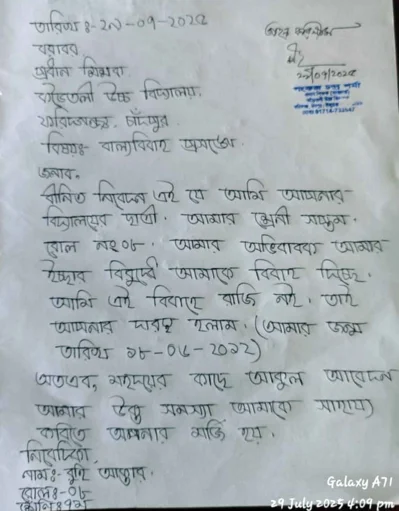 তারিখ ঃ- ২৯-০৭-২০২৫
বরাবর
প্রধান শিক্ষক
উচ্চ বিদ্যালয়
ফরিদগঞ্জ, চাঁদপুর
বিষয়ঃ- বাল্যবিবাহ প্রসঙ্গে
জনাব,
বিনিত নিবেদন এই যে আমি আপনার
বিদ্যালয়ের ছাত্রী। আমার শ্রেনী সপ্তম।
রোল নং ০৮। আমার অভিবাবক আমার
ইচ্ছার বিরুদ্ধে আমাকে বিবাহ দিচ্ছে।
আমি এই বিবাহে রাজি নই। তাই
আপনার হলাম। (আমার জন্ম
তারিখ ১৮-০৬-২০১২)
অতএব, মহদয়ের কাছে আকুল আবেদন
আমার উক্ত সমস্যা আমাকে সাহায্য
করিতে আপনার মর্জি হয়।
নিবেদিকা
নামঃ- আক্তার।
রোলঃ-০৮
শ্রেনিঃ৭ম
২৯/০৭/২০২৫
Galaxy A71
29 July 2025 4:09 pm